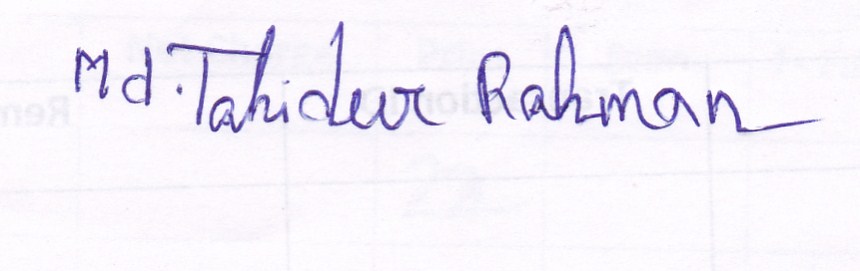 Md. Tahidur Rahman